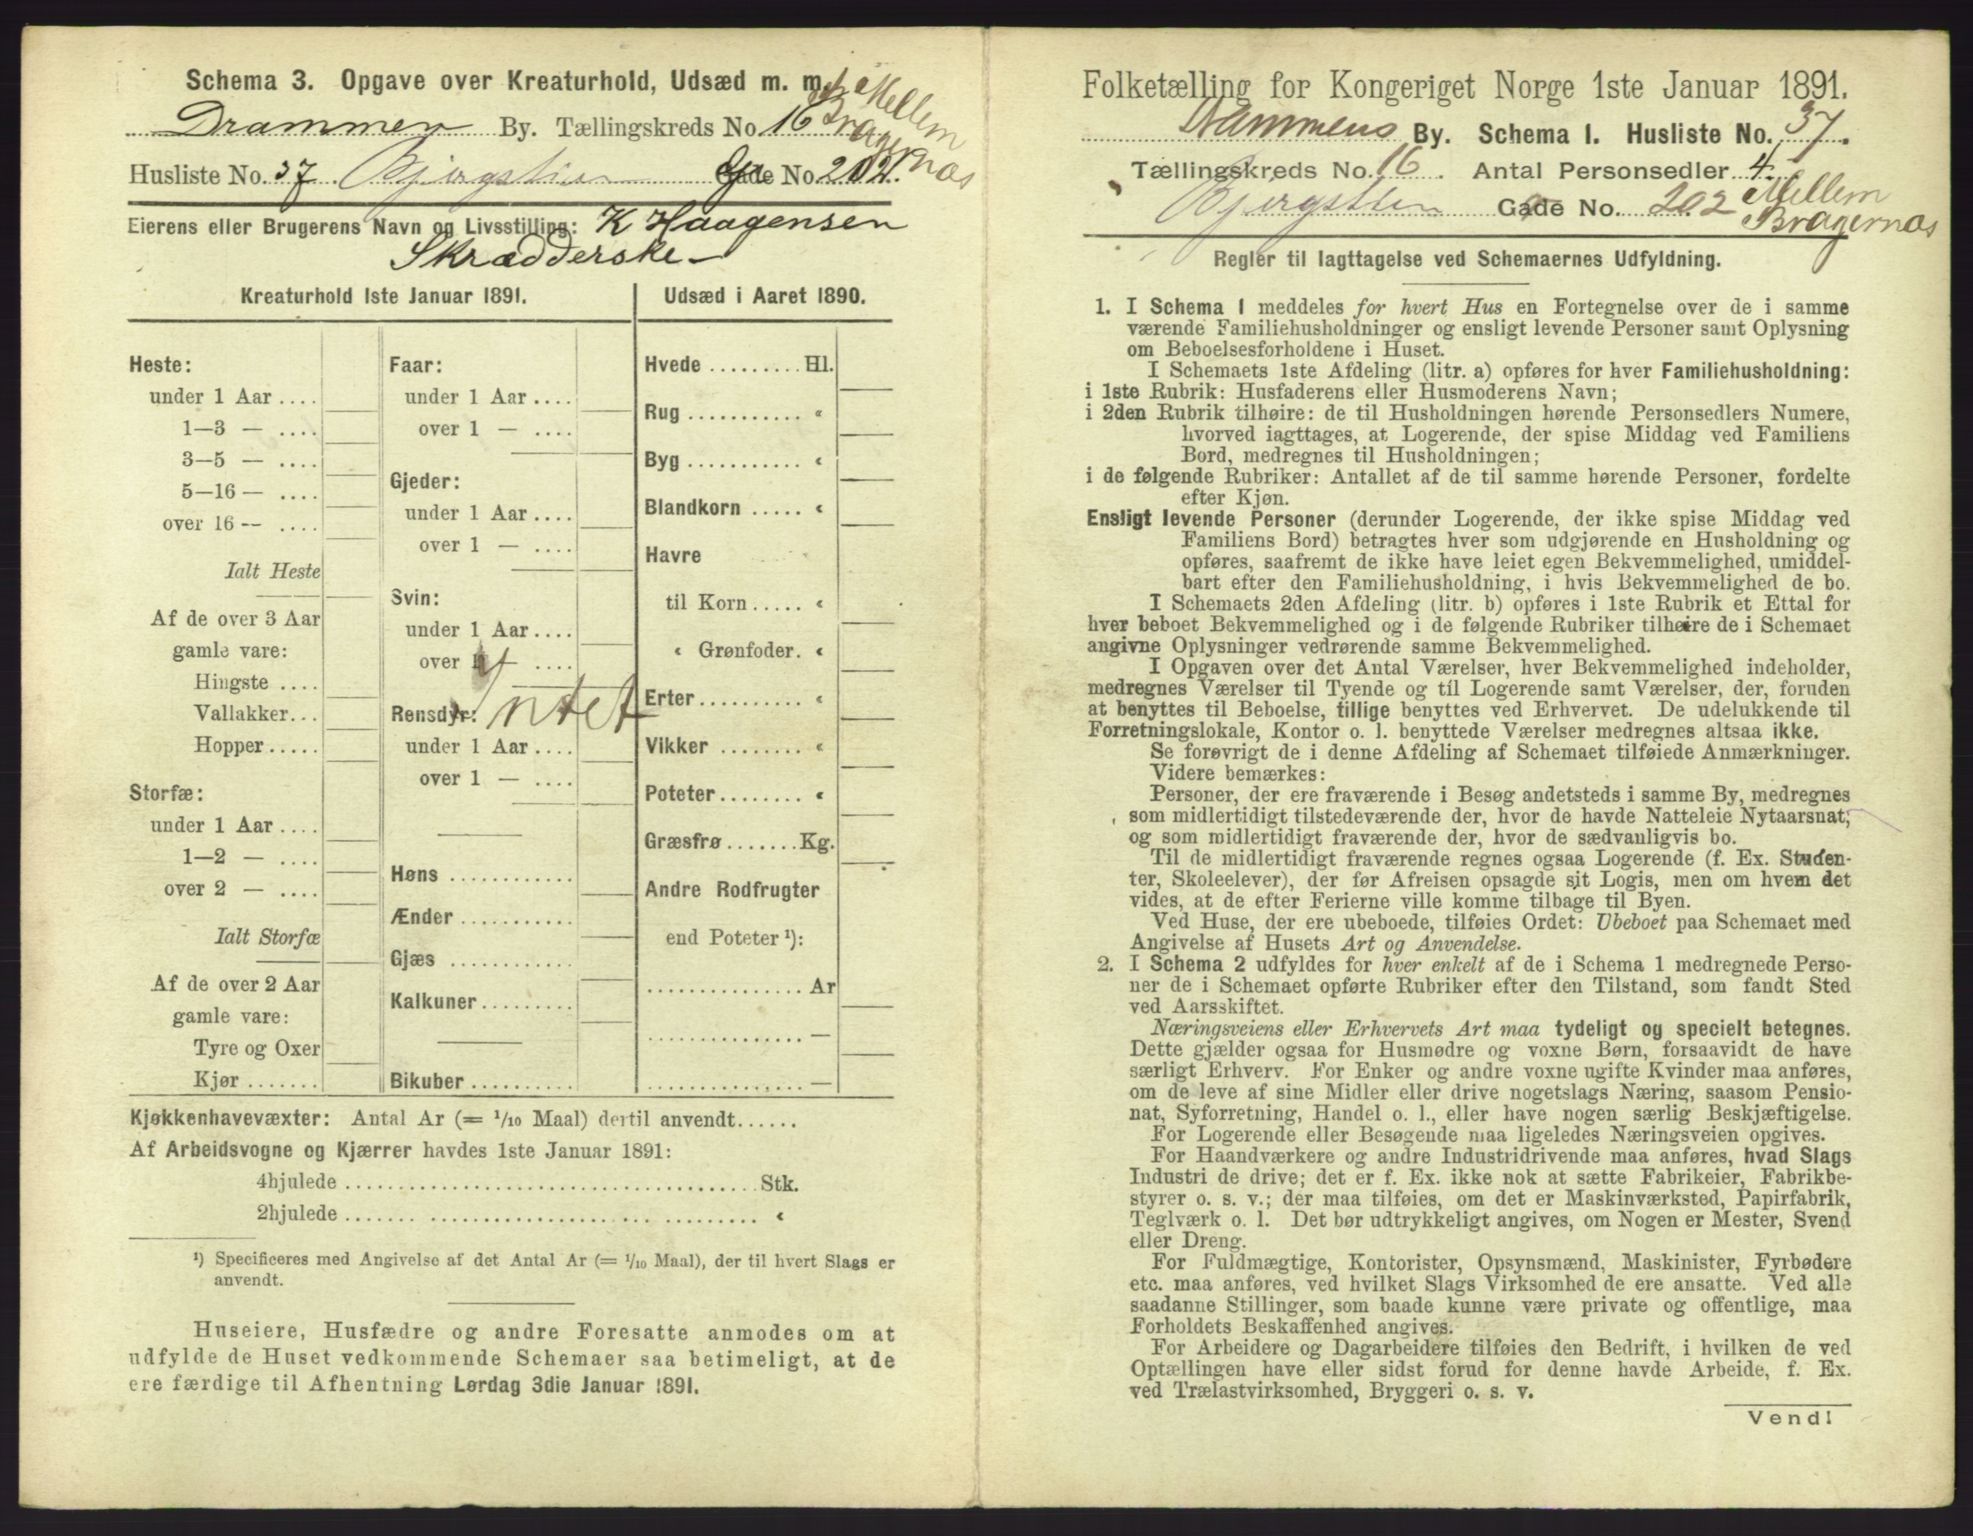 Schema 3. Opgave over Kreaturhold, Udsæd m. m.
Drammen By. Tællingskreds No 16 Mellem
Bragernæs
Husliste No. 37 Bjergstien Gade No 202.
Eierens eller Brugerens Navn og Livsstilling: K Haagensen
Skrædderske
Kreaturhold 1ste Januar 1891.
Heste:
under 1 Aar ....
1—3 — ....
3—5 — ....
5—16 — ....
over 16 — ....
Ialt Heste
Af de over 3 Aar
gamle vare:
Hingste ....
Vallakker...
Hopper.....
Storfæ:
under 1 Aar ....
1—2 — ....
over 2 — ....
Ialt Storfæ
Af de over 2 Aar
gamle vare:
Tyre og Oxer
Kjør.......
Faar:
under 1 Aar ....
over 1 — ....
Gjeder:
under 1 Aar ....
over 1 — ....
Svin:
under 1 Aar ....
over 1 — ....
Rensdyr: Intet
under 1 Aar ....
over 1 — ....
Høns ............
Ænder ...........
Gjæs ............
Kalkuner.........
Bikuber..........
Udsæd i Aaret 1890.
Hvede ......... Hl.
Rug ........... «
Byg ........... «
Blandkorn ..... «
Havre
til Korn..... «
« Grønfoder. «
Erter.......... «
Vikker ........ «
Poteter........ «
Græsfrø .......Kg.
Andre Rodfrugter
end Poteter ¹):
............... Ar
............... —
............... —
Kjøkkenhavevæxter: Antal Ar (= 1/10 Maal) dertil anvendt......
Af Arbeidsvogne og Kjærrer havdes 1ste Januar 1891:
4hjulede ....................................... Stk.
2hjulede ....................................... «
¹) Specificeres med Angivelse af det Antal Ar (= 1/10 Maal), der til hvert Slags er
anvendt.
Huseiere, Husfædre og andre Foresatte anmodes om at
udfylde de Huset vedkommende Schemaer saa betimeligt, at de
ere færdige til Afhentning Lørdag 3die Januar 1891.
Folketælling for Kongeriget Norge 1ste Januar 1891.
Drammens By. Schema 1. Husliste No. 37.
Tællingskreds No. 16. Antal Personsedler 4.
Bjergstien Gade No. 202 Mellem
Bragernæs
Regler til Iagttagelse ved Schemaernes Udfyldning.
1. I Schema 1 meddeles for hvert Hus en Fortegnelse over de i samme
værende Familiehusholdninger og ensligt levende Personer samt Oplysning
om Beboelsesforholdene i Huset.
I Schemaets 1ste Afdeling (litr. a) opføres for hver Familiehusholdning:
i 1ste Rubrik: Husfaderens eller Husmoderens Navn;
i 2den Rubrik tilhøire: de til Husholdningen hørende Personsedlers Numere,
hvorved iagttages, at Logerende, der spise Middag ved Familiens
Bord, medregnes til Husholdningen;
i de følgende Rubriker: Antallet af de til samme hørende Personer, fordelte
efter Kjøn.
Ensligt levende Personer (derunder Logerende, der ikke spise Middag ved
Familiens Bord) betragtes hver som udgjørende en Husholdning og
opføres, saafremt de ikke have leiet egen Bekvemmelighed, umiddel-
bart efter den Familiehusholdning, i hvis Bekvemmelighed de bo.
I Schemaets 2den Afdeling (litr. b) opføres i 1ste Rubrik et Ettal for
hver beboet Bekvemmelighed og i de følgende Rubriker tilhøire de i Schemaet
angivne Oplysninger vedrørende samme Bekvemmelighed.
I Opgaven over det Antal Værelser, hver Bekvemmelighed indeholder,
medregnes Værelser til Tyende og til Logerende samt Værelser, der, foruden
at benyttes til Beboelse, tillige benyttes ved Erhvervet. De udelukkende til
Forretningslokale, Kontor o. l. benyttede Værelser medregnes altsaa ikke.
Se forøvrigt de i denne Afdeling af Schemaet tilføiede Anmærkninger.
Videre bemærkes:
Personer, der ere fraværende i Besøg andetsteds i samme By, medregnes
som midlertidigt tilstedeværende der, hvor de havde Natteleie Nytaarsnat,
og som midlertidigt fraværende der, hvor de sædvanligvis bo.
Til de midlertidigt fraværende regnes ogsaa Logerende (f. Ex. Studen-
ter, Skoleelever), der før Afreisen opsagde sit Logis, men om hvem det
vides, at de efter Ferierne ville komme tilbage til Byen.
Ved Huse, der ere ubeboede, tilføies Ordet: Ubeboet paa Schemaet med
Angivelse af Husets Art og Anvendelse.
2. I Schema 2 udfyldes for hver enkelt af de i Schema 1 medregnede Perso-
ner de i Schemaet opførte Rubriker efter den Tilstand, som fandt Sted
ved Aarsskiftet.
Næringsveiens eller Erhvervets Art maa tydeligt og specielt betegnes.
Dette gjælder ogsaa for Husmødre og voxne Børn, forsaavidt de have
særligt Erhverv. For Enker og andre voxne ugifte Kvinder maa anføres,
om de leve af sine Midler eller drive nogetslags Næring, saasom Pensio-
nat, Syforretning, Handel o. l., eller have nogen særlig Beskjæftigelse.
For Logerende eller Besøgende maa ligeledes Næringsveien opgives.
For Haandværkere og andre Industridrivende maa anføres, hvad Slags
Industri de drive; det er f. Ex. ikke nok at sætte Fabrikeier, Fabrikbe-
styrer o. s. v.; der maa tilføies, om det er Maskinværksted, Papirfabrik,
Teglværk o. l. Det bør udtrykkeligt angives, om Nogen er Mester, Svend
eller Dreng.
For Fuldmægtige, Kontorister, Opsynsmænd, Maskinister, Fyrbødere
etc. maa anføres, ved hvilket Slags Virksomhed de ere ansatte. Ved alle
saadanne Stillinger, som baade kunne være private og offentlige, maa
Forholdets Beskaffenhed angives.
For Arbeidere og Dagarbeidere tilføies den Bedrift, i hvilken de ved
Optællingen have eller sidst forud for denne havde Arbeide, f. Ex.
ved Trælastvirksomhed, Bryggeri o. s. v.
Vend!